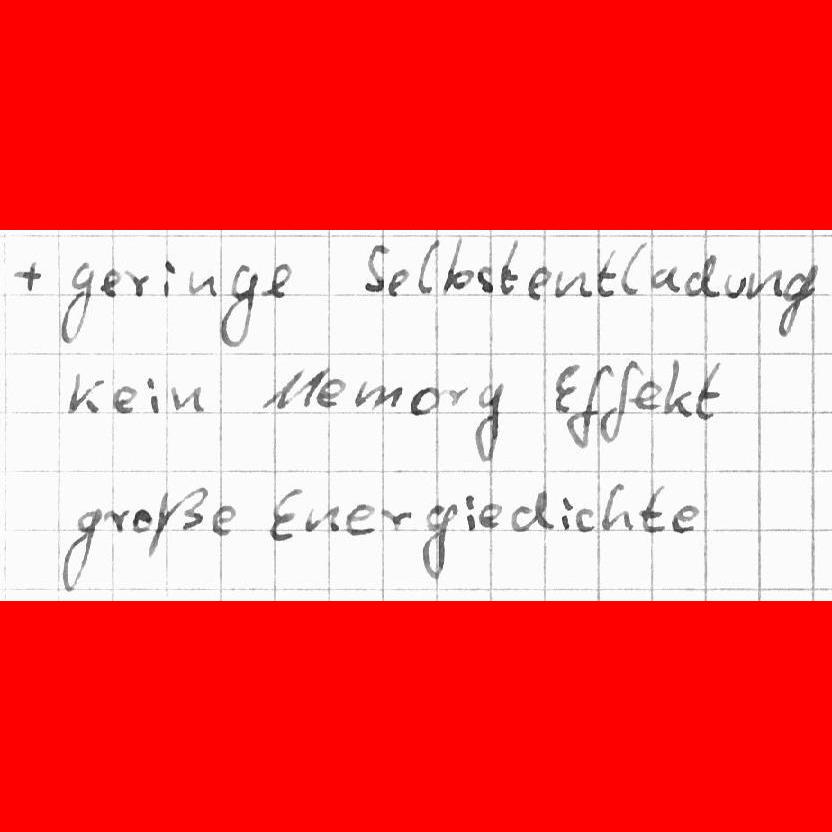 + geringe Selbstentladung
kein Memory Effekt
große Energiedichte